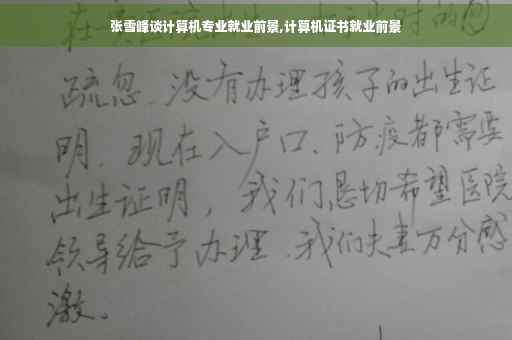 张雪峰谈计算机专业就业前景,计算机证书就业前景
疏忽.没有办理孩子的出生证
明.现在入户口、防疫都需要
出生证明，我们恳切希望医院
领导给予办理.我们夫妻万分感
激。